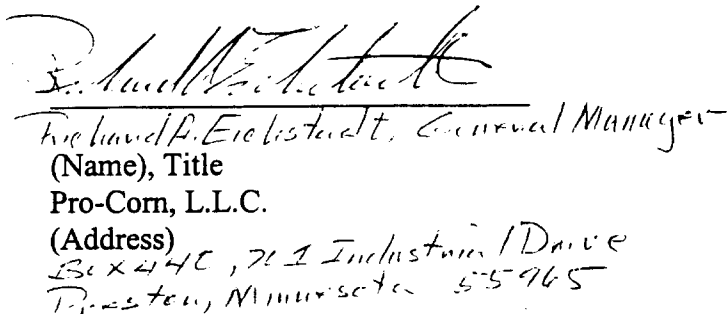 Richard A. Eichstadt
Richard A. Eichstadt, General Manager
(Name), Title
Pro-Corn, L.L.C.
(Address)
Box 44E, 701 Industrial Drive
Preston, Minnesota 55965